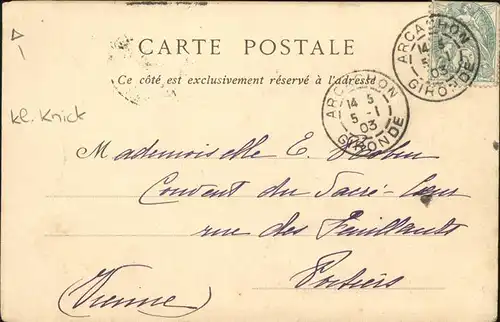 CARTE POSTALE
Ce côté est exclusivement réservé à l'adresse
ARCACHON
14 5
5 -1
03
GIRONDE
ARCACHON
14 5
5 -1
03
GIRONDE
kl. Knick
Mademoiselle E.
Couvent du Sacré-Cœur
rue des Feuillants
Poitiers
(Vienne)